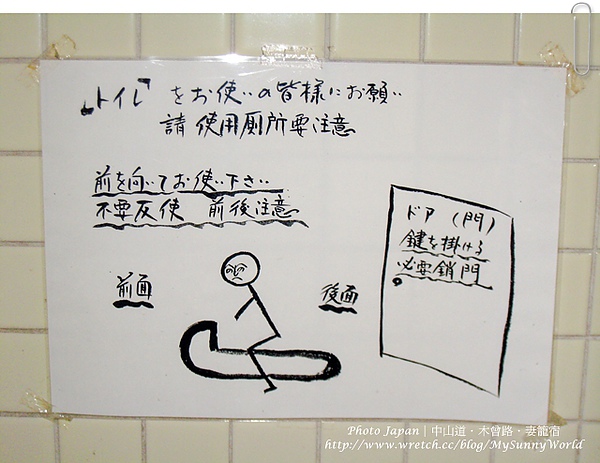 「トイレ」をお使いの皆様にお願い
請使用厠所要注意
前を向いてお使い下さい
不要反使 前後注意
前面
後面
ドア（門）
鍵を掛ける
必要鎖門
Photo Japan | 中山道・木曾路・妻籠宿
http://www.wretch.cc/blog/MySunnyWorld